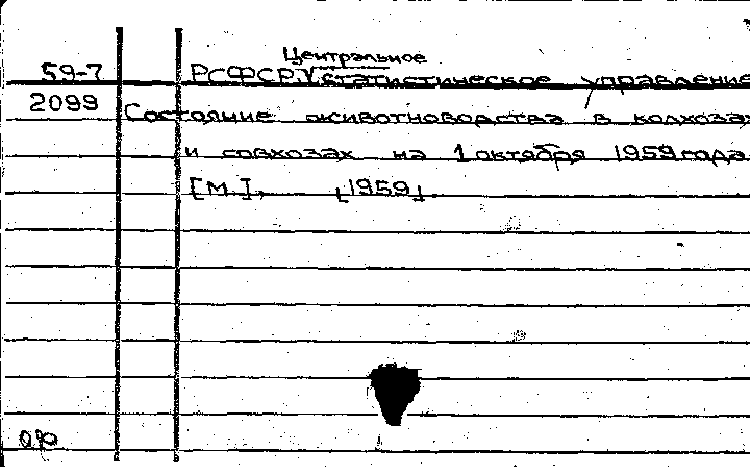 Центральное
59-7 РСФСР. статистическое управление
2099 Состояние животноводства в колхозах
и совхозах на 1 октября 1959 года.
[М.], [1959].